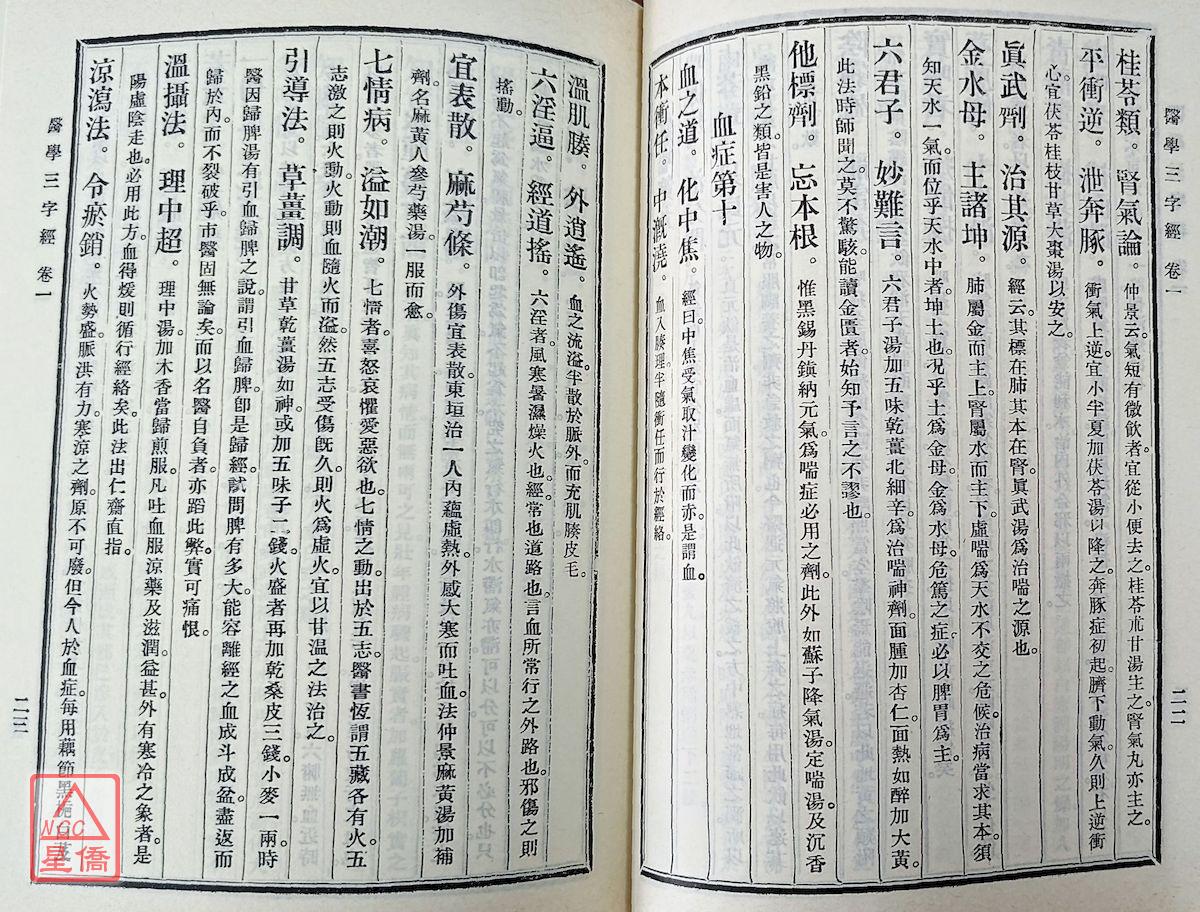 醫學三字經 卷一
二二
桂苓類。腎氣論。仲景云。氣短有微飲者。宜從小便去之。桂苓朮甘湯主之。腎氣丸亦主之。
平衝逆。泄奔豚。衝氣上逆。宜小半夏加茯苓湯以降之。奔豚症初起。臍下動氣。久則上逆衝
心。宜茯苓桂枝甘草大棗湯以安之。
眞武劑。治其源。經云。其標在肺。其本在腎。眞武湯爲治喘之源也。
金水母。主諸坤。肺屬金而主上。腎屬水而主下。虛喘爲天水不交之危候。治病當求其本。須
知天水一氣。而位乎天水中者。坤土也。況乎土爲金母。金爲水母。危篤之症。必以脾胃爲主。
六君子。妙難言。六君子湯加五味乾薑北細辛。爲治喘神劑。面腫加杏仁。面熱如醉加大黃。
此法時師聞之。莫不驚駭。能讀金匱者。始知予言之不謬也。
他標劑。忘本根。惟黑錫丹鎮納元氣。爲喘症必用之劑。此外如蘇子降氣湯。定喘湯。及沉香
黑鉛之類。皆是害人之物。
血症第十
血之道。化中焦。經曰。中焦受氣取汁。變化而赤。是謂血。
本衝任。中溉澆。血入腠理。半隨衝任而行於經絡。
溫肌腠。外逍遙。血之流溢。半散於脈外。而充肌腠皮毛。
六淫逼。經道搖。六淫者。風寒暑濕燥火也。經常也。道路也。言血所常行之外路也。邪傷之則
搖動。
宜表散。麻芍條。外傷宜表散。東垣治一人內蘊虛熱。外感大寒而吐血。法仲景麻黃湯加補
劑。名麻黃人參芍藥湯。一服而愈。
七情病。溢如潮。七情者。喜怒哀懼愛惡欲也。七情之動。出於五志。醫書恆謂五藏各有火。五
志激之則火動。火動則血隨火而溢。然五志受傷旣久。則火爲虛火。宜以甘溫之法治之。
引導法。草薑調。甘草乾薑湯如神。或加五味子二錢。火盛者。再加乾桑皮三錢。小麥一兩。時
醫因歸脾湯有引血歸脾之說。謂引血歸脾。卽是歸經。試問脾有多大。能容離經之血成斗成盆。盡返而
歸於內而不裂破乎。市醫固無論矣。而以名醫自負者。亦蹈此弊。實可痛恨。
溫攝法。理中超。理中湯加木香當歸煎服。凡吐血服涼藥及滋潤益甚。外有寒冷之象者。是
陽虛陰走也。必用此方。血得煖則循行經絡矣。此法出仁齋直指。
涼瀉法。令瘀銷。火勢盛。脈洪有力。寒涼之劑。原不可廢。但今人於血症。每用藕節黑梔白芨
醫學三字經 卷一
二三
NGC
星僑